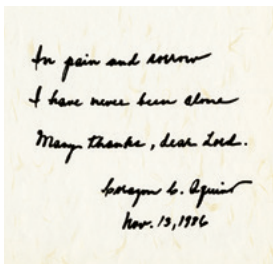 In pain and sorrow
I have never been alone
Many thanks, dear Lord.
Corazon C. Aquino
Nov. 13, 1986